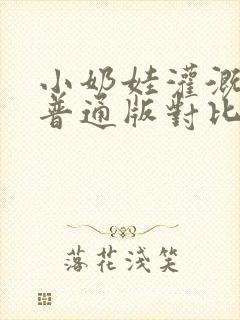 小奶娃灌溉
普通版對比
落花淺笑